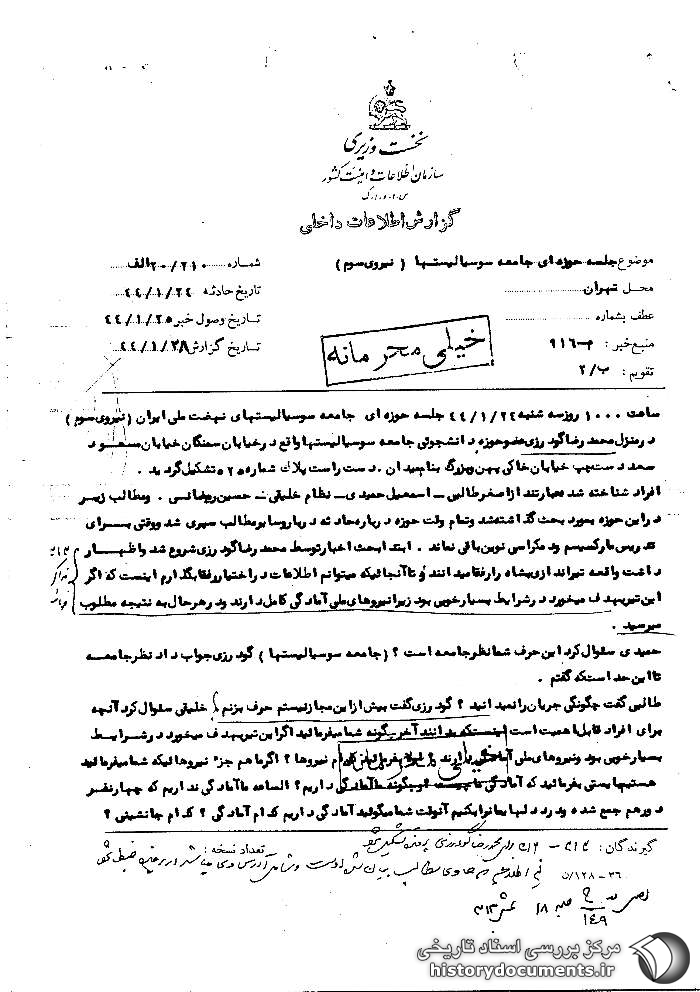 نخست وزیری
سازمان اطلاعات و امنیت کشور
س.ا.و.ا.ک
گزارش اطلاعات داخلی
موضوع جلسه حوزه ای جامعه سوسیالیستها ( نیروی سوم )
شماره ۲۰/۲۱۰الف
محل تهران
تاریخ حادثه ۴۴/۱/۲۴
عطف بشماره
تاریخ وصول خبر ۴۴/۱/۲۵
منبع خبر : ۹۱۶
تاریخ گزارش ۴۴/۱/۲۸
تقویم : ب/۲
خیلی محرمانه
ساعت ۱۰۰۰ روز سه شنبه ۴۴/۱/۲۴ جلسه حوزه ای جامعه سوسیالیستهای نهضت ملی ایران ( نیروی سوم )
در منزل محمد رضا گودرزی عضو حوزه دانشجوئی جامعه سوسیالیستها واقع در خیابان سمنگان خیابان مسعود
سعد دست چپ خیابان خاکی پهن وبزرگ بنام میدان . دست راست پلاک شماره ۵۲۵ تشکیل گردید .
افراد شناخته شد عبارتند از اصغر طالبی – اسمعیل حمیدی – نظام خلیقی – حسین . ومطالب زیر
در این حوزه بمورد بحث گذاشته شد وتمام وقت حوزه در باره حادثه دربار وسایر مطالب سپری شد ووقتی برای
تدریس مارکسیسم ودمکراسی نوین باقی نماند . ابتدا بحث اخبار توسط محمد رضا گودرزی شروع شد واظهار
داشت واقعه تیراندازی بشاه را رفقا میدانند وتا آنجائیکه میتوانم اطلاعات در اختیار رفقا بگذارم اینست که اگر
این تیر بهدف میخورد در شرایط بسیار خوبی بود زیرا نیروهای ملی آمادگی کامل دارند ودر هر حال به نتیجه مطلوب
میرسید .
حمیدی سئوال کرد این حرف شما نظر جامعه است ؟ ( جامعه سوسیالیستها ) گودرزی جواب داد نظر جامعه
تا این حد است که گفتم .
طالبی گفت چگونگی جریان را نمیدانید ؟ گودرزی گفت بیش از این مجاز نیستم حرف بزنم . خلیقی سئوال کرد آنچه
برای افراد قابل اهمیت است اینستکه بدانند آخر چگونه شما میفرمائید اگر این تیر بهدف میخورد در شرایط
بسیار خوبی بود ونیروهای ملی آمادگی دارند کدام نیروها ؟ اگر ما هم جزء نیروهائیکه شما میفرمائید
هستیم بایستی بفرمائید که آمادگی ما چیست وچگونه ما آمادگی داریم ؟ الساعه ما آمادگی نداریم که چهار نفر
دور هم جمع شده ودرد دلها بنمائیم آنوقت شما میگوئید آمادگی داریم کدام آمادگی ؟ کدام جانشینی ؟
خیلی محرمانه
گیرندگان : ۳۱۲ –
تعداد نسخه :
۳۶ – ۵/۱۲۸
۱۴۹
مرکز بررسی اسناد تاریخی
historydocuments.ir